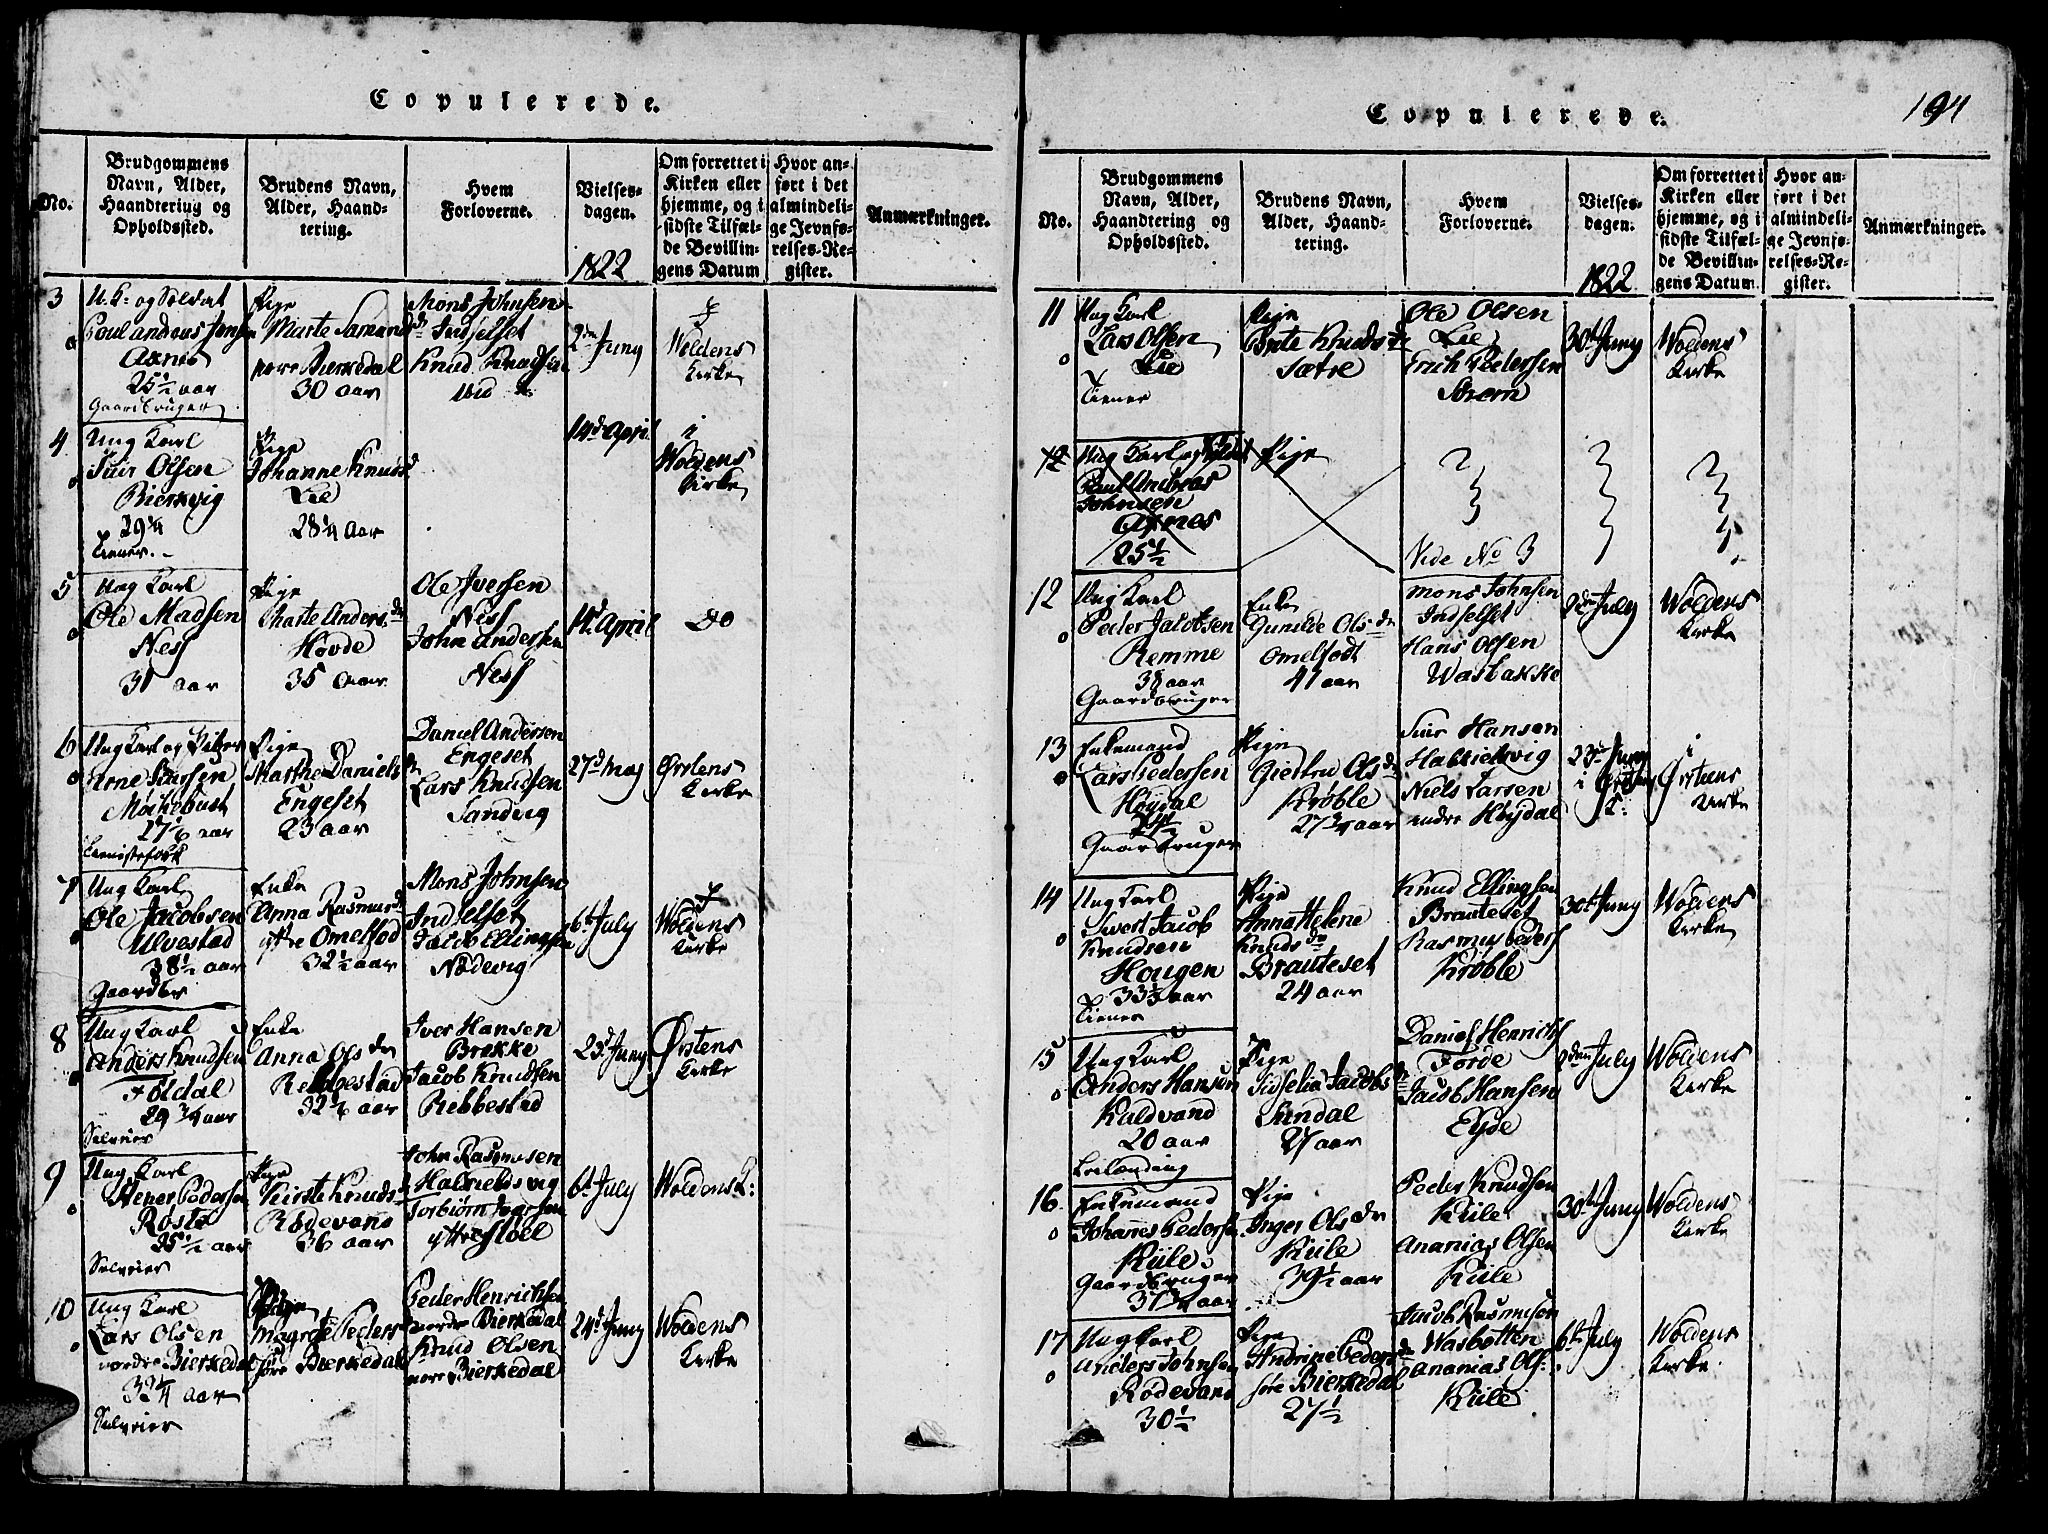 Copulerede.
No.
Brudgommens
Navn, Alder,
Haandtering og
Opholdssted.
Brudens Navn,
Alder, Haand-
tering.
Hvem
Forloverne.
Vielses-
dagen.
1822
Om forrettet i
Kirken eller
hjemme, og i
sidste Tilfæl-
de Bevillin-
gens Datum
Hvor an-
ført i det
almindeli-
ge Jevnfø-
relses-Re-
gister.
Anmærkninger.
3
U. K. og Soldat
Poul Andreas Jensen
Aarnes
25½ aar
Gaardbruger
Pige
Marte Samuels dr
nore Bierkedal
30 aar
Mons Johnsen
Indselset
Knud Knudsen
ibid
2den Juny
Woldens
Kirke
4
Ung Karl
Siur Olsen
Bierkvig
29¼
Tiener
Pige
Johanne Knuds d
Lie
28¼ Aar
14d April
i
Woldens
Kirke
5
Ung Karl
Ole Madsen
Ness
31 aar
Pige
Marte Anders dr
Hovde
35 Aar
Ole Iversen
Ness
John Andersen
Ness
14d April
do
6
Ung Karl og
Arne
Mørkebust
27 aar
Pige
Marthe Daniels dr
Engeset
23 aar
Daniel Andersen
Engeset
Lars Knudsen
Sandvig
27d Maj
Ørstens
Kirke
7
Ung Karl
Ole Jacobsen
Ulvestad
38½ aar
Gaardbr
Enke
Anna Rasmus d
ytre Omelfod
32½ aar
Mons Johnsen
Indselset
Jacob Ellingsen
Nødevig
6te July
Woldens
Kirke
8
Ung Karl
Anders Knudsen
Foldal
29¾ aar
Selveier
Enke
Anna Ols dr
Rebbestad
32 aar
Iver Hansen
Brekke
Jacob Knudsen
Rebbestad
23d Juny
Ørstens
Kirke
9
Ung Karl
Stener Pedersen
Røste
35½ aar
Selveier
Pige
Kirste Knuds d
Rødevand
36 aar
John Rasmusen
Halkieldsvig
Torbiørn Iversen
ytre Støel
6te July
Woldens K:
10
Ung Karl
Lars Olsen
nordre Bierkedal
32¼ Aar
Selveier
Pige
Magrete Peders
søre Bierkedal
Peder Henrichsen
nordre Bierkedal
Knud Olsen
nore Bierkedal
24d Juny
Woldens
Kirke
Copulerede.
194
No.
Brudgommens
Navn, Alder,
Haandtering og
Opholdssted.
Brudens Navn,
Alder, Haand-
tering.
Hvem
Forloverne.
Vielses-
dagen.
1822
Om forrettet i
Kirken eller
hjemme, og i
sidste Tilfæl-
de Bevillin-
gens Datum.
Hvor an-
ført i det
almindeli-
ge Jevnfø-
relses-Re-
gister.
Anmærkninger.
11
Ung Karl
Lars Olsen
Lie
Tiener
Pige
Brite Knuds dr
Sætre
Ole Olsen
Lie
Erich Pedersen
Strøm
30te Juny
Woldens
Kirke
12
Ung Karl og Soldat
Poul Andreas
Johnsen
Aarnes
25½
Pige
Vide No 3
12
Ung Karl
Peder Jacobsen
Remme
38 aar
Gaardbruger
Enke
Gunilde Ols dr
Omelfodt
41 aar
Mons Johnsen
Indselset
Hans Olsen
Wasbakke
2den July
Woldens
Kirke
13
Enkemand
Lars Pedersen
Høydal
Gaardbruger
Pige
Giertru Ols dr
Krøble
27¾ aar
Siur Hansen
Halkielsvig
Niels Larsen
indre Høydal
23de Juny
i Ørsten
K:
i
Ørstens
Kirke
14
Ung Karl
Sivert Jacob
Knudsen
Hougen
33½ aar
Tiener
Pige
Anna Helene
Knuds dr
Brauteset
24 aar
Knud Ellingsen
Brauteset
Rasmus Peders
Krøble
30te Juny
Woldens
Kirke
15
Ung Karl
Anders Hansen
Kaldvand
20 aar
Leilænding
Pige
Sidselia Jacobs dr
Sundal
27 aar
Daniel Henrichs
Forde
Jacob Hansen
Eyde
2den July
Woldens
Kirke
16
Enkemand
Johannes Pedersen
Kiile
Gaardbruger
37¾ aar
Pige
Inger Ols dr
Kiile
39½ aar
Peder Knudsen
Kiile
Ananias Olsen
Kiile
30te Juny
Woldens
Kirke
17
Ung Karl
Anders Johnsen
Rødevand
30½
Pige
Andrine Peders dr
søre Bierkedal
27½
Jacob Rasmusen
Wasbotten
Ananias Ols:
Kiile
6te July
Woldens
Kirke